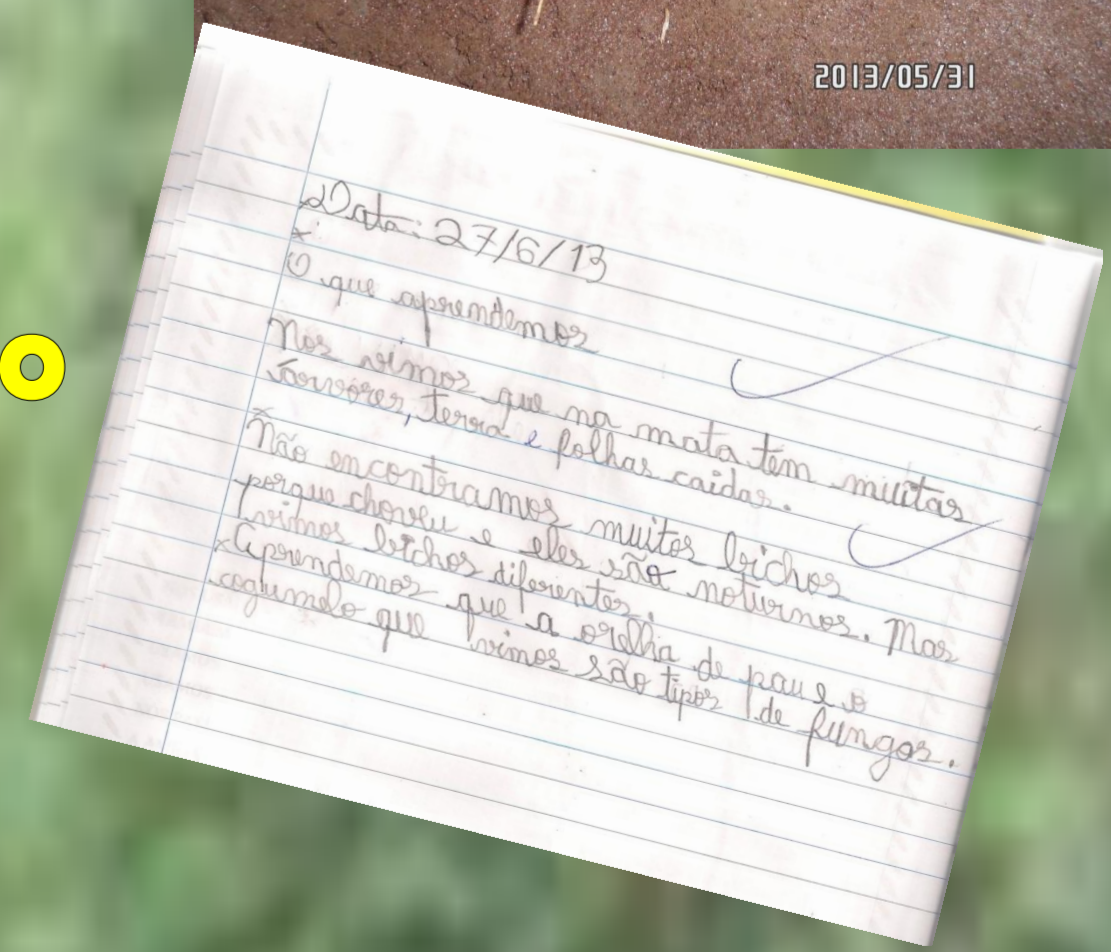 2013/05/31
Data: 27/6/13
O que aprendemos
Nos vimos que na mata tem muitas
árvores, terra e folhas caidas.
Não encontramos muitos bichos
porque choveu e eles são noturnos. Mas
vimos bichos diferentes.
Aprendemos que a orelha de pau e o
cogumelo que vimos são tipos de fungos.